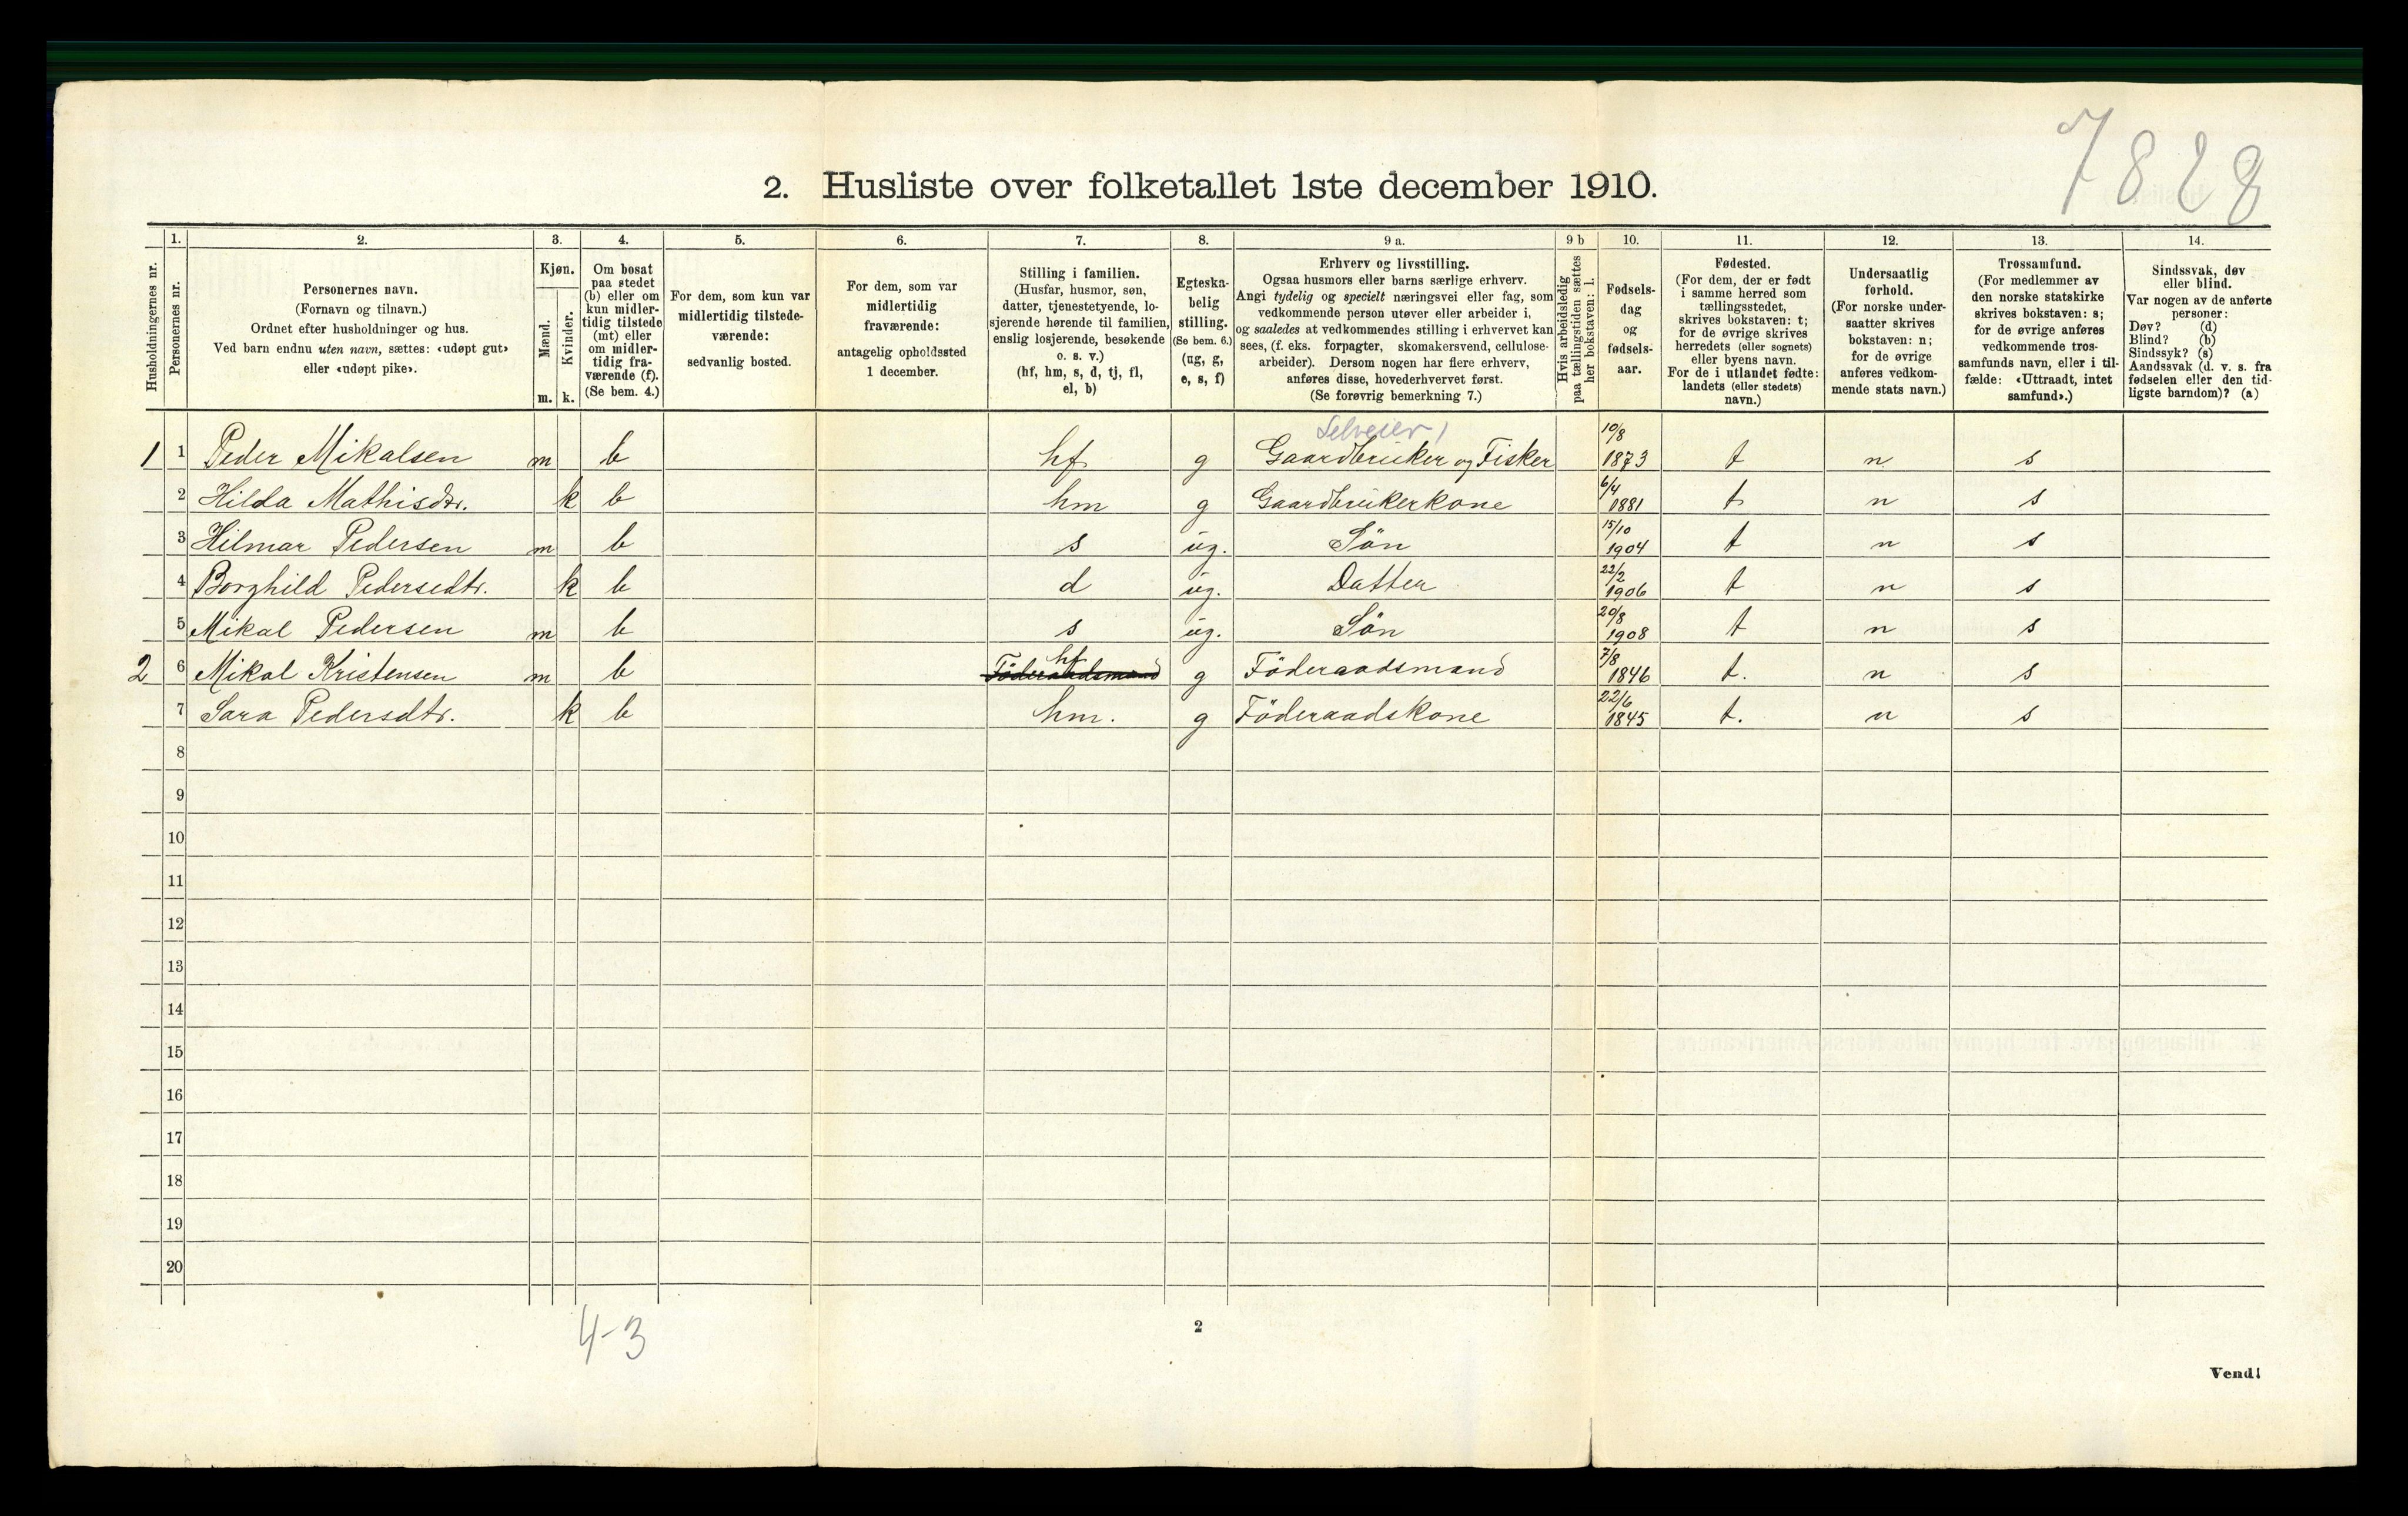 7828
2. Husliste over folketallet 1ste december 1910.
Husholdningernes nr.
1. Personernes nr.
2. Personernes navn.
(Fornavn og tilnavn.)
Ordnet efter husholdninger og hus.
Ved barn endnu uten navn, sættes: «udøpt gut»
eller «udøpt pike».
3. Kjøn.
Mænd. m.
Kvinder. k.
4. Om bosat
paa stedet
(b) eller om
kun midler-
tidig tilstede
(mt) eller
om midler-
tidig fra-
værende (f).
(Se bem. 4.)
5. For dem, som kun var
midlertidig tilstede-
værende:
sedvanlig bosted.
6. For dem, som var
midlertidig
fraværende:
antagelig opholdssted
1 december.
7. Stilling i familien.
(Husfar, husmor, søn,
datter, tjenestetyende, lo-
sjerende hørende til familien,
enslig losjerende, besøkende
o. s. v.)
(hf, hm, s, d, tj, fl,
el, b)
8. Egteska-
belig
stilling.
(Se bem. 6.)
(ug, g,
e, s, f)
9 a. Erhverv og livsstilling.
Ogsaa husmors eller barns særlige erhverv.
Angi tydelig og specielt næringsvei eller fag, som
vedkommende person utøver eller arbeider i,
og saaledes at vedkommendes stilling i erhvervet kan
sees, (f. eks. forpagter, skomakersvend, cellulose-
arbeider). Dersom nogen har flere erhverv,
anføres disse, hovederhvervet først.
(Se forøvrig bemerkning 7.)
9 b Hvis arbeidsledig
paa tællingstiden sættes
her bokstaven: l.
10. Fødsels-
dag
og
fødsels-
aar.
11. Fødested.
(For dem, der er født
i samme herred som
tællingsstedet,
skrives bokstaven: t;
for de øvrige skrives
herredets (eller sognets)
eller byens navn.
For de i utlandet fødte:
landets (eller stedets)
navn.)
12. Undersaatlig
forhold.
(For norske under-
saatter skrives
bokstaven: n;
for de øvrige
anføres vedkom-
mende stats navn.)
13. Trossamfund.
(For medlemmer av
den norske statskirke
skrives bokstaven: s;
for de øvrige anføres
vedkommende tros-
samfunds navn, eller i til-
fælde: «Uttraadt, intet
samfund».)
14. Sindssvak, døv
eller blind.
Var nogen av de anførte
personer:
Døv? (d)
Blind? (b)
Sindssyk? (s)
Aandssvak (d. v. s. fra
fødselen eller den tid-
ligste barndom)? (a)
Selveier)
1 1 Peder Mikalsen m b hf g Gaardbruker og Fisker 10/8 1873 t n s
2 Hilda Mathisdtr. k b hm g Gaardbrukerkone 6/4 1881 t n s
3 Hilmar Pedersen m b s ug. Sön 15/10 1904 t n s
4 Borghild Pedersedtr. k b d ug. Datter 22/2 1906 t n s
5 Mikal Pedersen m b s ug. Sön 20/8 1908 t n s
2 6 Mikal Kristensen m b Föderaadsmand hf g Föderaadsmand 7/8 1846 t. n s
7 Sara Pedersdtr. k b hm. g Föderaadskone 22/6 1845 t. n s
8
9
10
11
12
13
14
15
16
17
18
19
20
4-3
2
Vend!